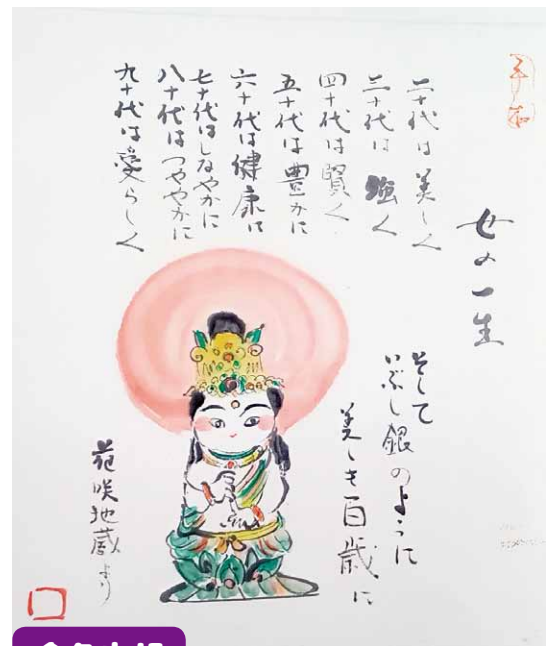 女の一生
二十代は美しく
三十代は強く
四十代は賢く
五十代は豊かに
六十代は健康に
七十代はしなやかに
八十代はつややかに
九十代は愛らしく
そして
いぶし銀のように
美しき百歳に
花咲地蔵より